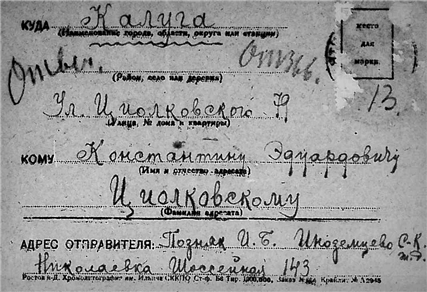 КУДА Калуга
(Наименование города, области, округа или станции)
место
для
марки
Ответ. Отзыв.
(Район, село или деревня)
13.
Ул. Циолковского 79
(Улица, № дома и квартиры)
КОМУ Константину Эдуардовичу
(Имя и отчество адресата)
Циолковскому
(Фамилия адресата)
АДРЕС ОТПРАВИТЕЛЯ: Позняк И.Б. Иноземцево С-К. ж.д.
Николаевка Шоссейная 143
Ростов н-Д. Хромолитография им. Ильича СККПО Ст-ф. Б6 Тир. Заказ № Крайлит. № А 2945